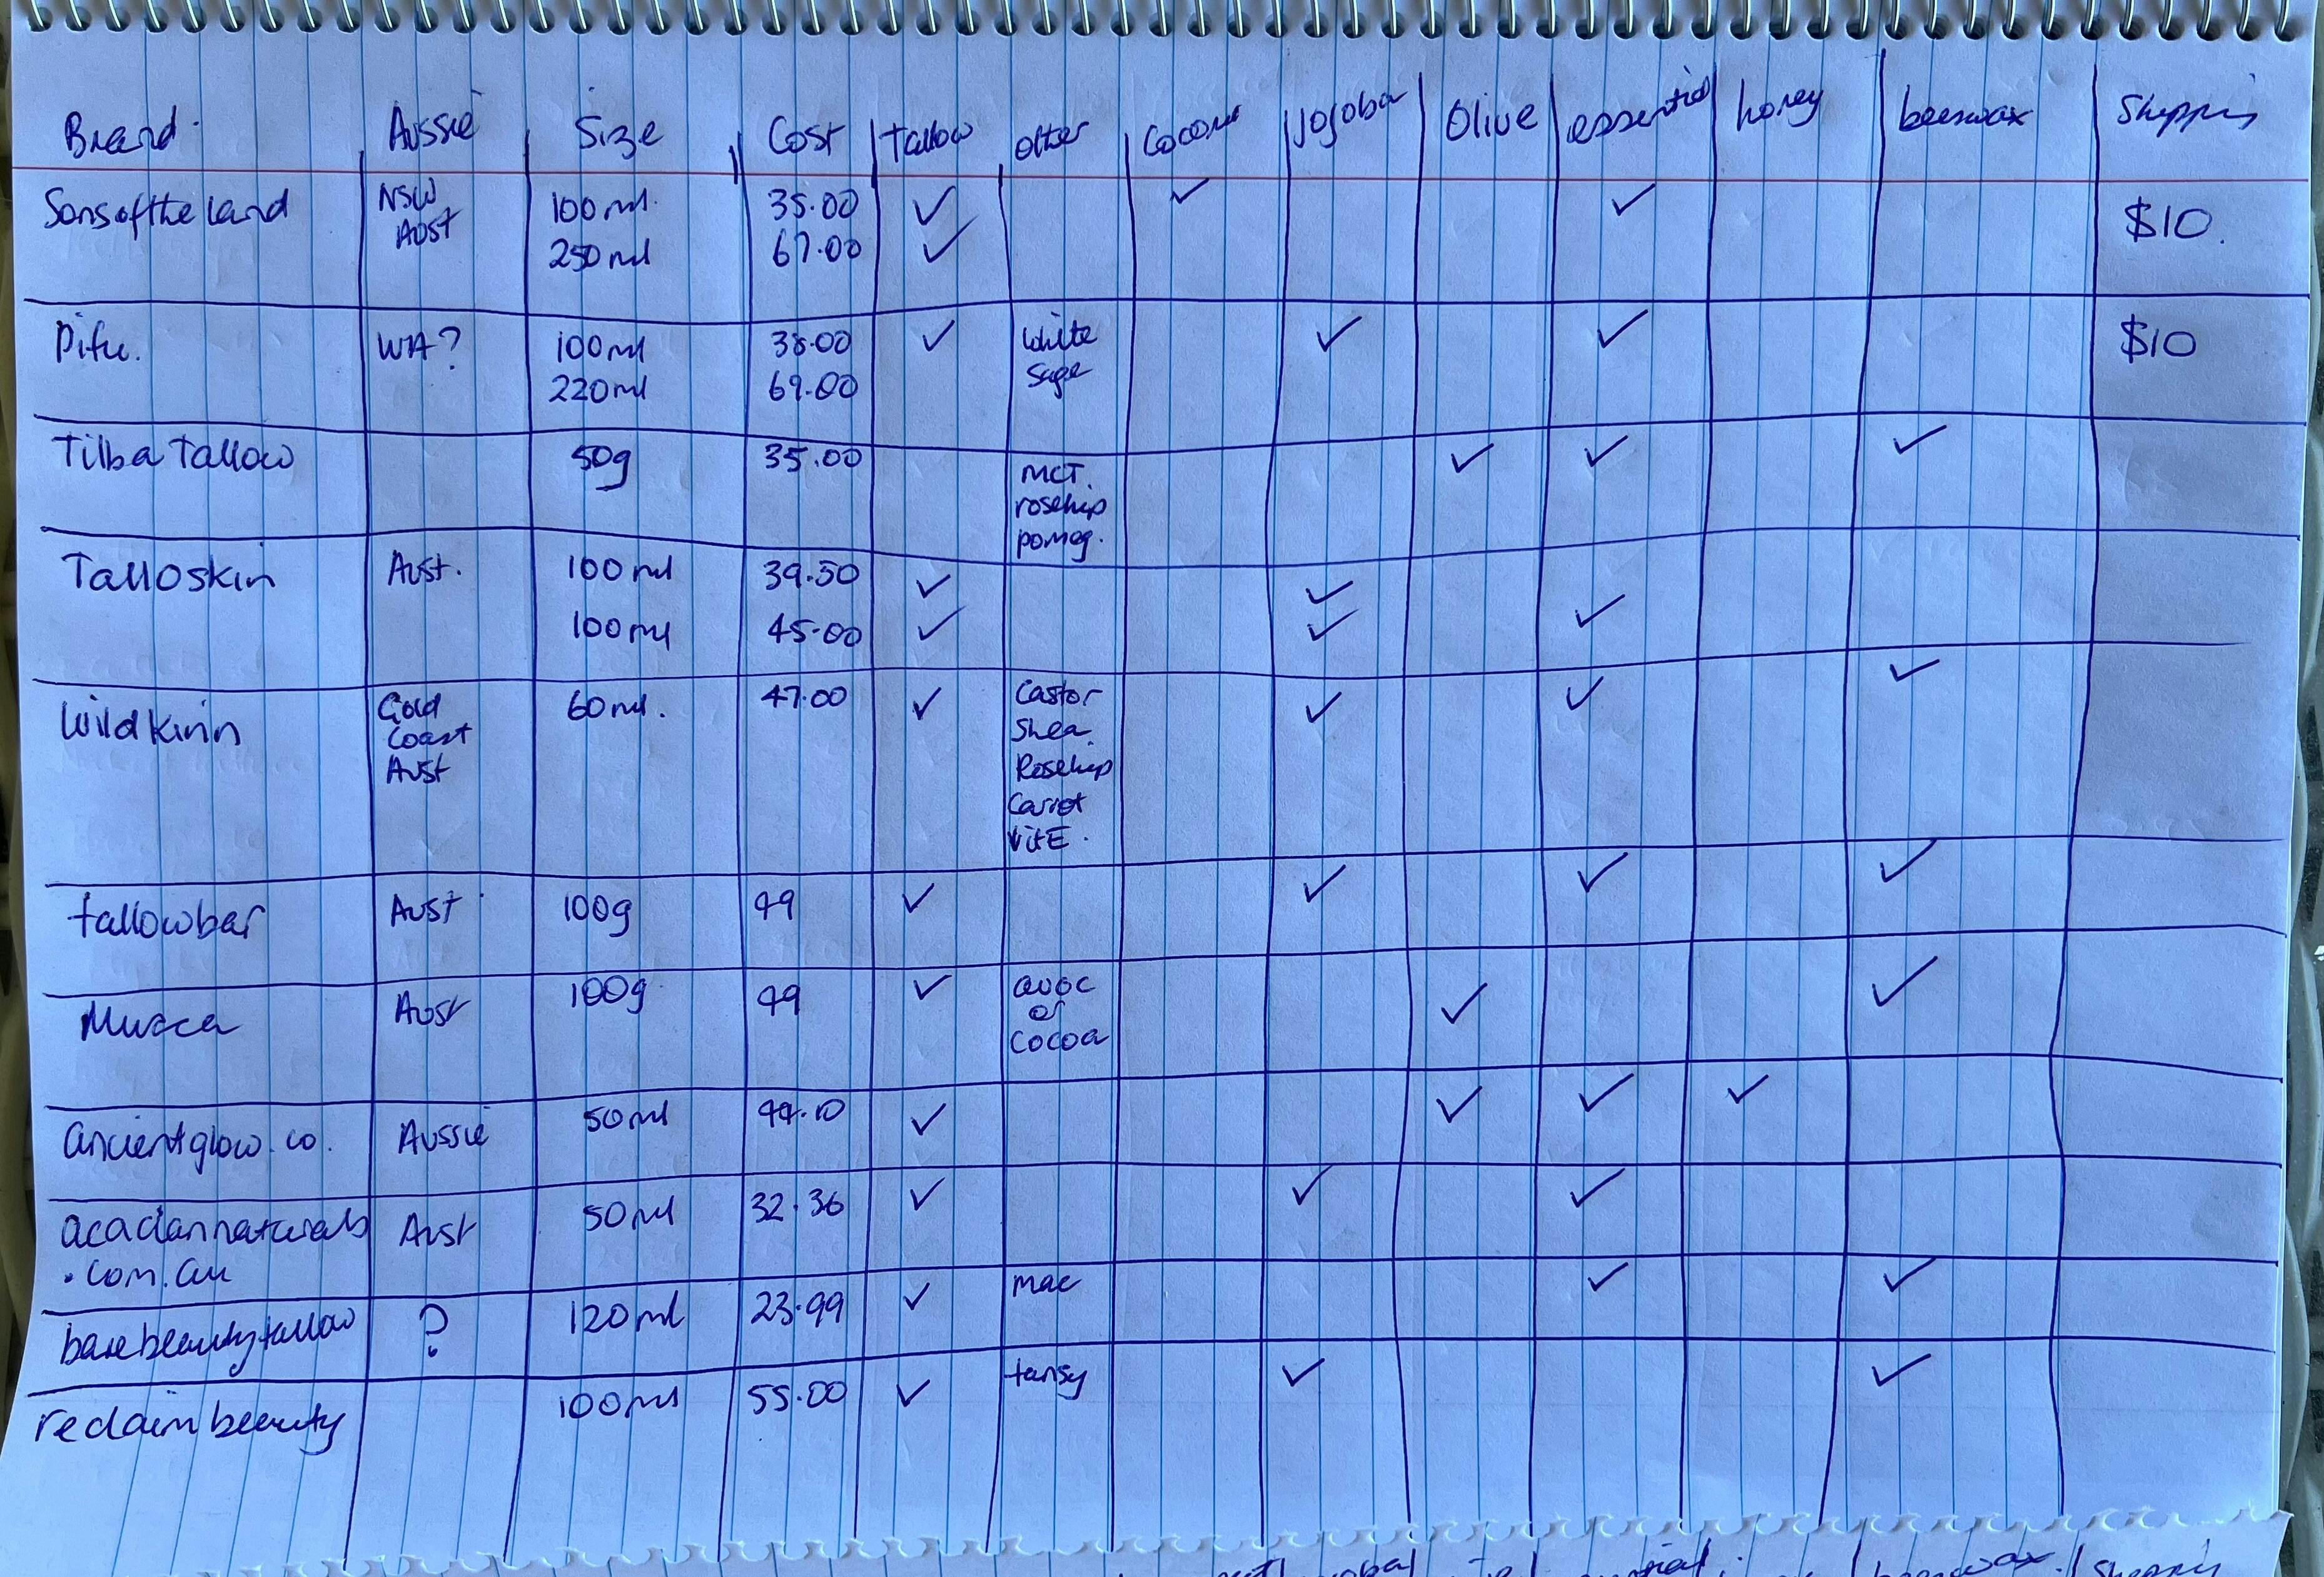 Brand. Aussie Size Cost Tallow other Coconut Jojoba Olive essential honey beeswax Shipping
Sons of the Land NSW 100ml. 35.00 ✓ ✓ ✓ $10.
Aust 250ml 67.00 ✓
Pifu. WA? 100ml 38.00 ✓ White ✓ ✓ $10
220ml 69.00 Sage
Tilba Tallow 50g 35.00 MCT. ✓ ✓ ✓
rosehip
pomeg.
Talloskin Aust. 100ml 39.50 ✓ ✓
100ml 45.00 ✓ ✓ ✓
Wildkinn Gold 60ml. 47.00 ✓ Castor ✓ ✓ ✓
Coast Shea
Aust Rosehip
Carrot
VitE.
tallowbar Aust 100g 49 ✓ ✓ ✓ ✓
Aust 100g 49 ✓ avoc ✓ ✓
or
Cocoa
ancientglow.co. Aussie 50ml 44.10 ✓ ✓ ✓ ✓
acadiannaturals Aust 50ml 32.36 ✓ ✓ ✓
.com.au
barebeautytallow ? 120ml 23.99 ✓ mac ✓ ✓
reclaim beauty 100ml 55.00 ✓ tansy ✓ ✓
beeswax. Shipping